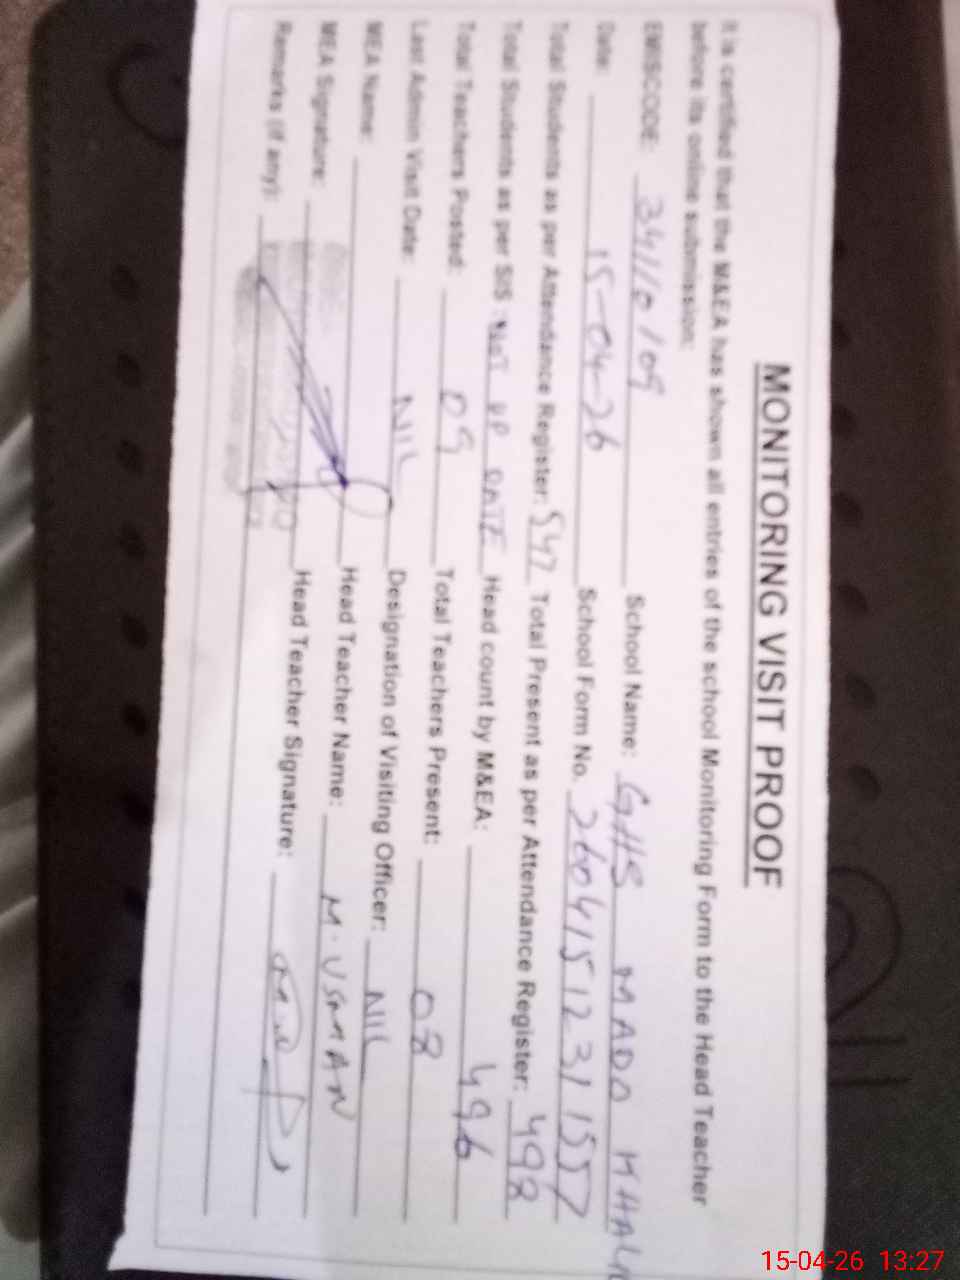 MONITORING VISIT PROOF
It is certified that the M&EA has shown all entries of the school Monitoring Form to the Head Teacher
before its online submission:
EMISCODE: 34110109 School Name: GHS MADO KHALI
Date: 15-04-26 School Form No. 26041512311557
Total Students as per Attendance Register: 547 Total Present as per Attendance Register: 498
Total Students as per SIS: NOT UP DATE Head count by M&EA: 496
Total Teachers Posted: 09 Total Teachers Present: 08
Last Admin Visit Date: NIL Designation of Visiting Officer: NIL
MEA Name: Head Teacher Name: M. USMAN
MEA Signature: Head Teacher Signature:
Remarks (if any):
15-04-26 13:27